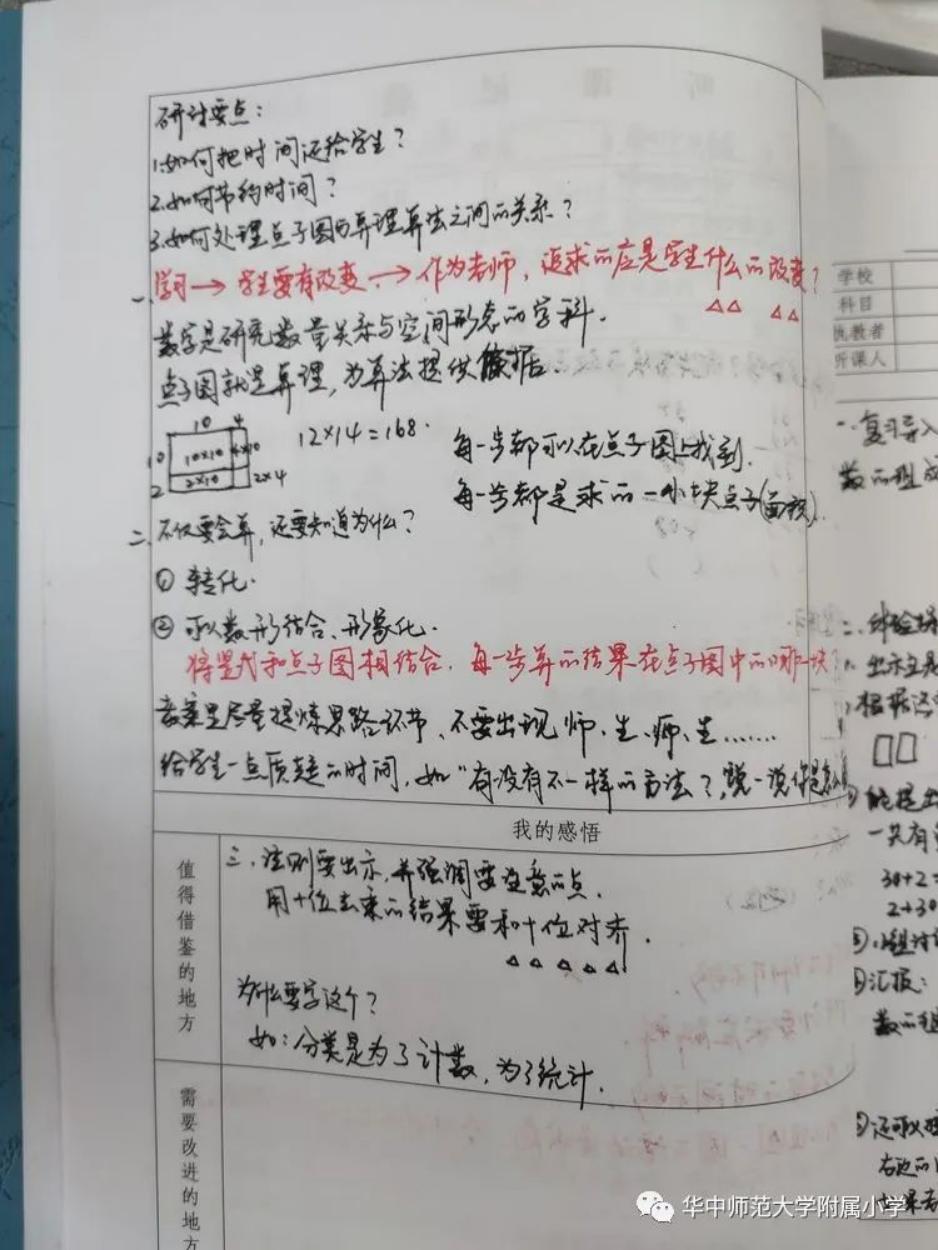 研讨要点：
1.如何把时间还给学生？
2.如何节约时间？
3.如何处理点子图与算理算法之间的关系？
一、学习→学生要有改变.→作为老师，追求的应是学生什么的改变？
数学是研究数量关系与空间形态的学科.
点子图就是算理，为算法提供依据.
10 4
10 10×10 4×10
2 2×10 2×4
12×14=168.
每一步都可以在点子图上找到.
每一步都是求的一小块点子(面积).
二、不仅要会算，还要知道为什么？
① 转化.
② 可以数形结合、形象化.
将竖式和点子图相结合.每一步算的结果在点子图中的哪一块？
教案里尽量提炼思路环节，不要出现师、生、师、生……
给学生一点质疑的时间，如“有没有不一样的方法？，说一说你是怎
我的感悟
值得借鉴的地方
三、法则要出示，并强调要注意的点.
用十位去乘的结果要和十位对齐.
为什么要学这个？
如：分类是为了计数，为了统计.
需要改进的地方
学校
科目
执教者
听课人
一.复习导入
数的组成
二、体验探
出示主题
根据这
能提出
一共有
30+2=
2+30
小组讨论
汇报：
数的组
还可以
右边的
如果去
华中师范大学附属小学